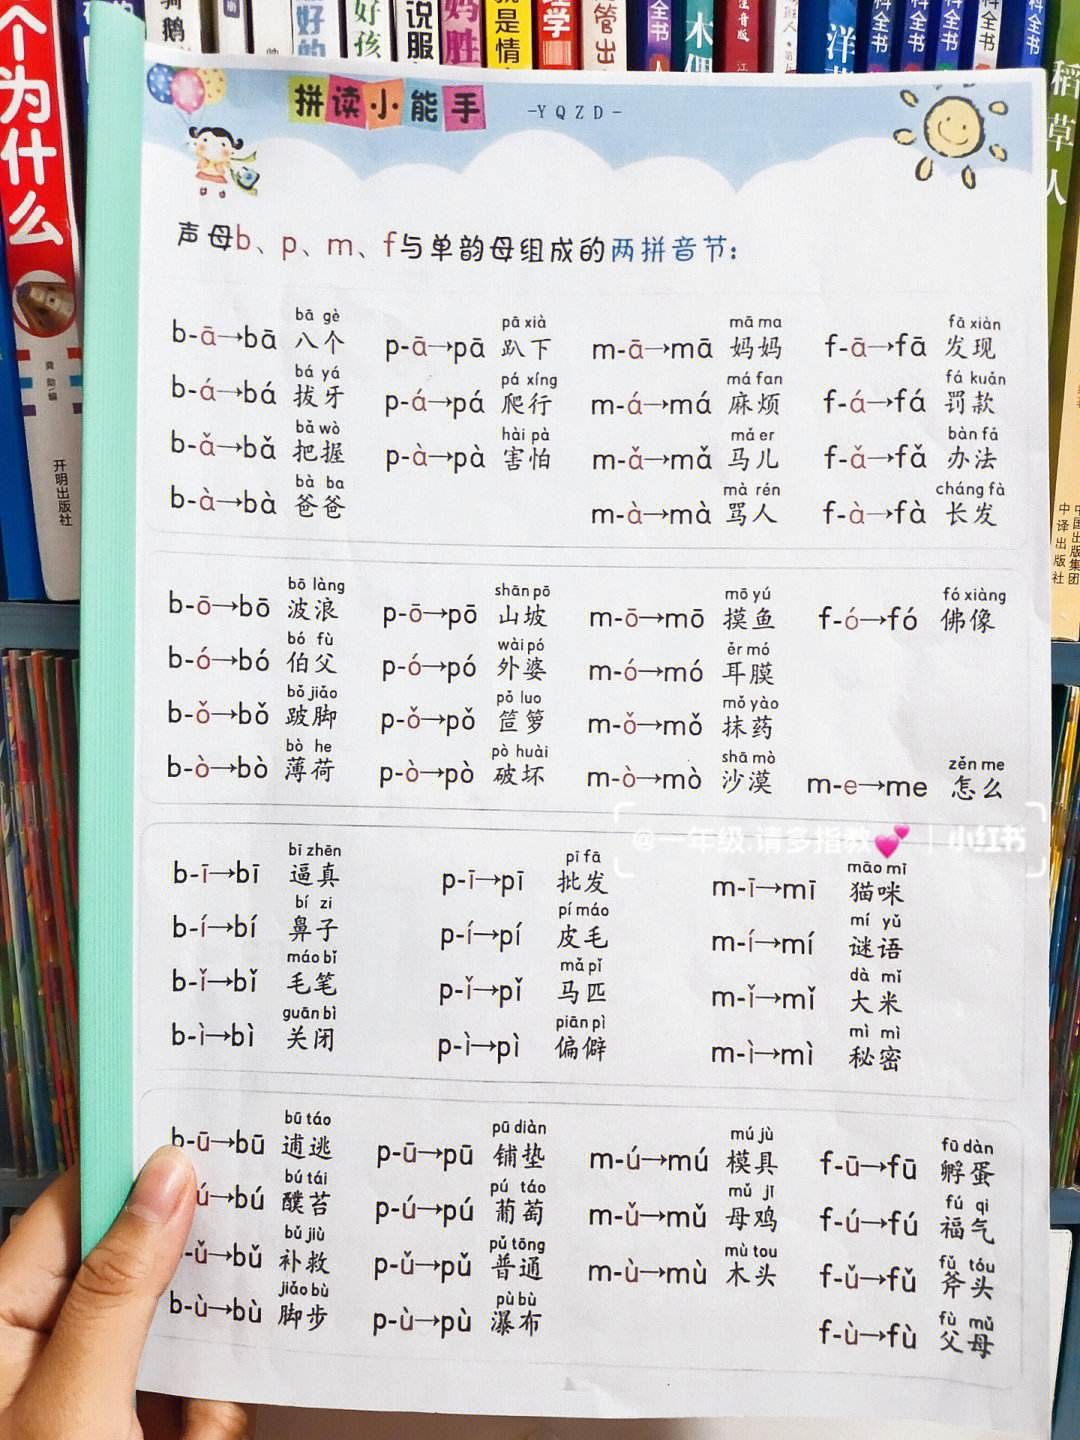 个为什么
龚勋/编
开明出版社
骑鹅
好的
好孩
说服
妈胜
就是情
理学
管出
全书
木偶
注音版
洋
科全书
科全书
科全书
科全书
稻草人
中译出版社
中国出版集团
拼读小能手
-YQZD-
声母b、p、m、f与单韵母组成的两拼音节:
bā gè pā xià mā ma fā xiàn
b-ā→bā 八个 p-ā→pā 趴下 m-ā→mā 妈妈 f-ā→fā 发现
bá yá pá xíng má fan fá kuǎn
b-á→bá 拔牙 p-á→pá 爬行 m-á→má 麻烦 f-á→fá 罚款
bǎ wò hài pà mǎ er bàn fǎ
b-ǎ→bǎ 把握 p-à→pà 害怕 m-ǎ→mǎ 马儿 f-ǎ→fǎ 办法
bà ba mà rén cháng fà
b-à→bà 爸爸 m-à→mà 骂人 f-à→fà 长发
bō làng shān pō mō yú fó xiàng
b-ō→bō 波浪 p-ō→pō 山坡 m-ō→mō 摸鱼 f-ó→fó 佛像
bó fù wài pó ěr mó
b-ó→bó 伯父 p-ó→pó 外婆 m-ó→mó 耳膜
bǒ jiǎo pǒ luo mǒ yào
b-ǒ→bǒ 跛脚 p-ǒ→pǒ 笸箩 m-ǒ→mǒ 抹药
bò he pò huài shā mò zěn me
b-ò→bò 薄荷 p-ò→pò 破坏 m-ò→mò 沙漠 m-e→me 怎么
@一年级.请多指教💕 | 小红书
bī zhēn pī fā māo mī
b-ī→bī 逼真 p-ī→pī 批发 m-ī→mī 猫咪
bí zi pí máo mí yǔ
b-í→bí 鼻子 p-í→pí 皮毛 m-í→mí 谜语
máo bǐ mǎ pǐ dà mǐ
b-ǐ→bǐ 毛笔 p-ǐ→pǐ 马匹 m-ǐ→mǐ 大米
guān bì piān pì mì mì
b-ì→bì 关闭 p-ì→pì 偏僻 m-ì→mì 秘密
bū táo pū diàn mú jù fū dàn
b-ū→bū 逋逃 p-ū→pū 铺垫 m-ú→mú 模具 f-ū→fū 孵蛋
bú tái pú táo mǔ jī fú qi
ú→bú 醭苔 p-ú→pú 葡萄 m-ǔ→mǔ 母鸡 f-ú→fú 福气
bǔ jiù pǔ tōng mù tou fǔ tóu
-ǔ→bǔ 补救 p-ǔ→pǔ 普通 m-ù→mù 木头 f-ǔ→fǔ 斧头
jiǎo bù pù bù fù mǔ
b-ù→bù 脚步 p-ù→pù 瀑布 f-ù→fù 父母